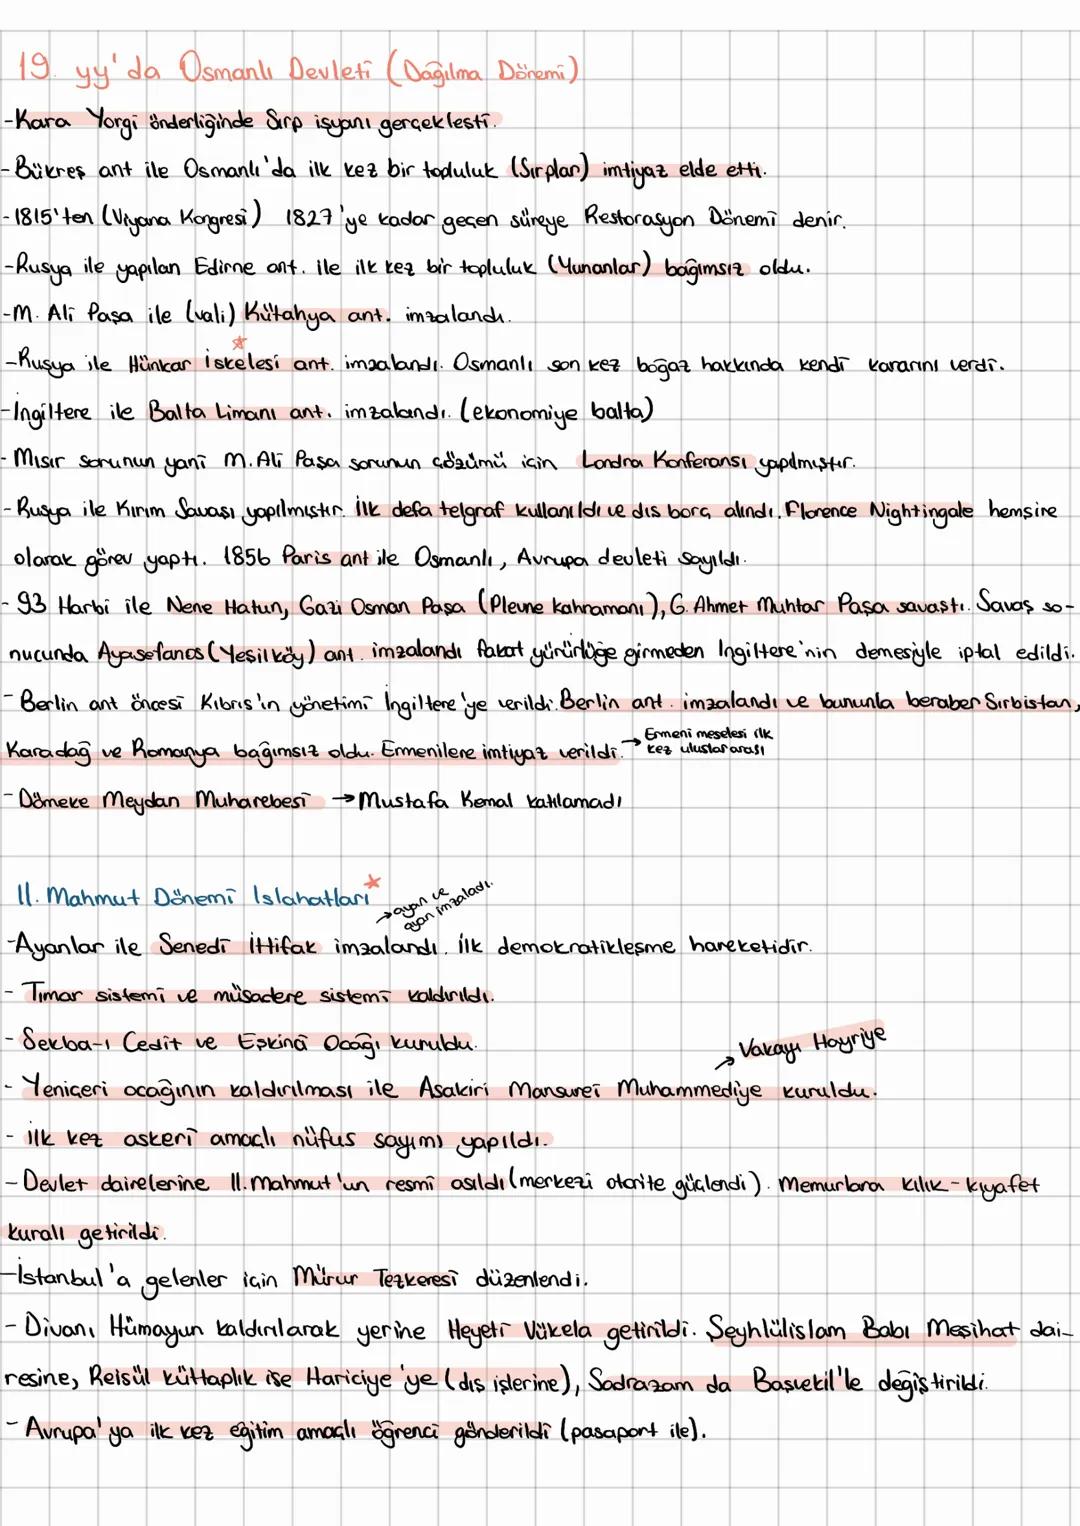 19. yy'da Osmanlı Devleti (Dağılma Dönemi)
-Kara Yorgi önderliğinde Sırp işyanı gerçekleşti.
-Bükreş ant ile Osmanlı'da ilk kez bir topluluk (Sırplar) imtiyaz elde etti.
-1815'ten (Viyana Kongresi) 1827'ye kadar geçen süreye Restorasyon Dönemi denir.
-Rusya ile yapılan Edirne ant. ile ilk kez bir topluluk (Yunanlar) bağımsız oldu.
-M. Ali Paşa ile (vali) Kütahya ant. imzalandı.
-Rusya ile Hünkar iskelesi ant. imzalandı. Osmanlı son kez boğaz hakkında kendi kararını verdi.
-İngiltere ile Balta Limanı ant. imzalandı. (ekonomiye balta)
- Mısır sorunun yani M. Ali Paşa sorunun çözümü için Londra Konferansı yapılmıştır.
- Rusya ile Kırım Savaşı yapılmıştır. İlk defa telgraf kullanıldı ve dış borç alındı. Florence Nightingale hemşire
olarak görev yaptı. 1856 Paris ant ile Osmanlı, Avrupa devleti sayıldı.
- 93 Harbi ile Nene Hatun, Gazi Osman Paşa (Plevne kahramanı), G. Ahmet Muhtar Paşa savaştı. Savaş so-
nucunda Ayasefanos (Yeşilköy) ant. imzalandı fakat yürürlüğe girmeden İngiltere'nin demesiyle iptal edildi.
- Berlin ant öncesi Kıbrıs'ın yönetimi İngiltere'ye verildi. Berlin ant. imzalandı ve bununla beraber Sırbistan,
Karadağ ve Romanya bağımsız oldu. Ermenilere imtiyaz verildi. → Ermeni meselesi ilk
kez uluslararası
- Dömeke Meydan Muharebesi → Mustafa Kemal katılamadı
II. Mahmut Dönemi Islahatları
→ ayan ve
ayan imzaladı.
-Ayanlar ile Senedi İttifak imzalandı. İlk demokratikleşme hareketidir.
- Tımar sistemi ve müsadere sistemi kaldırıldı.
- Sekba-ı Cedit ve Eşkinci Ocağı kuruldu.
→ Vakayı Hayriye
- Yeniçeri ocağının kaldırılması ile Asakiri Mansurei Muhammediye kuruldu.
- ilk kez askeri amaçlı nüfus sayımı yapıldı.
- Devlet dairelerine II. Mahmut'un resmi asıldı (merkezi otorite güçlendi). Memurlara kılık-kıyafet
kuralı getirildi.
-İstanbul'a gelenler için Mürur Tezkeresi düzenlendi.
- Divanı Hümayun kaldırılarak yerine Heyeti Vükela getirildi. Şeyhlülislam Babı Meşihat dai-
resine, Reisül küttaplık ise Hariciye'ye (dış işlerine), Sadrazam da Başvekil'le değiştirildi.
- Avrupa'ya ilk kez eğitim amaçlı öğrenci gönderildi (pasaport ile).